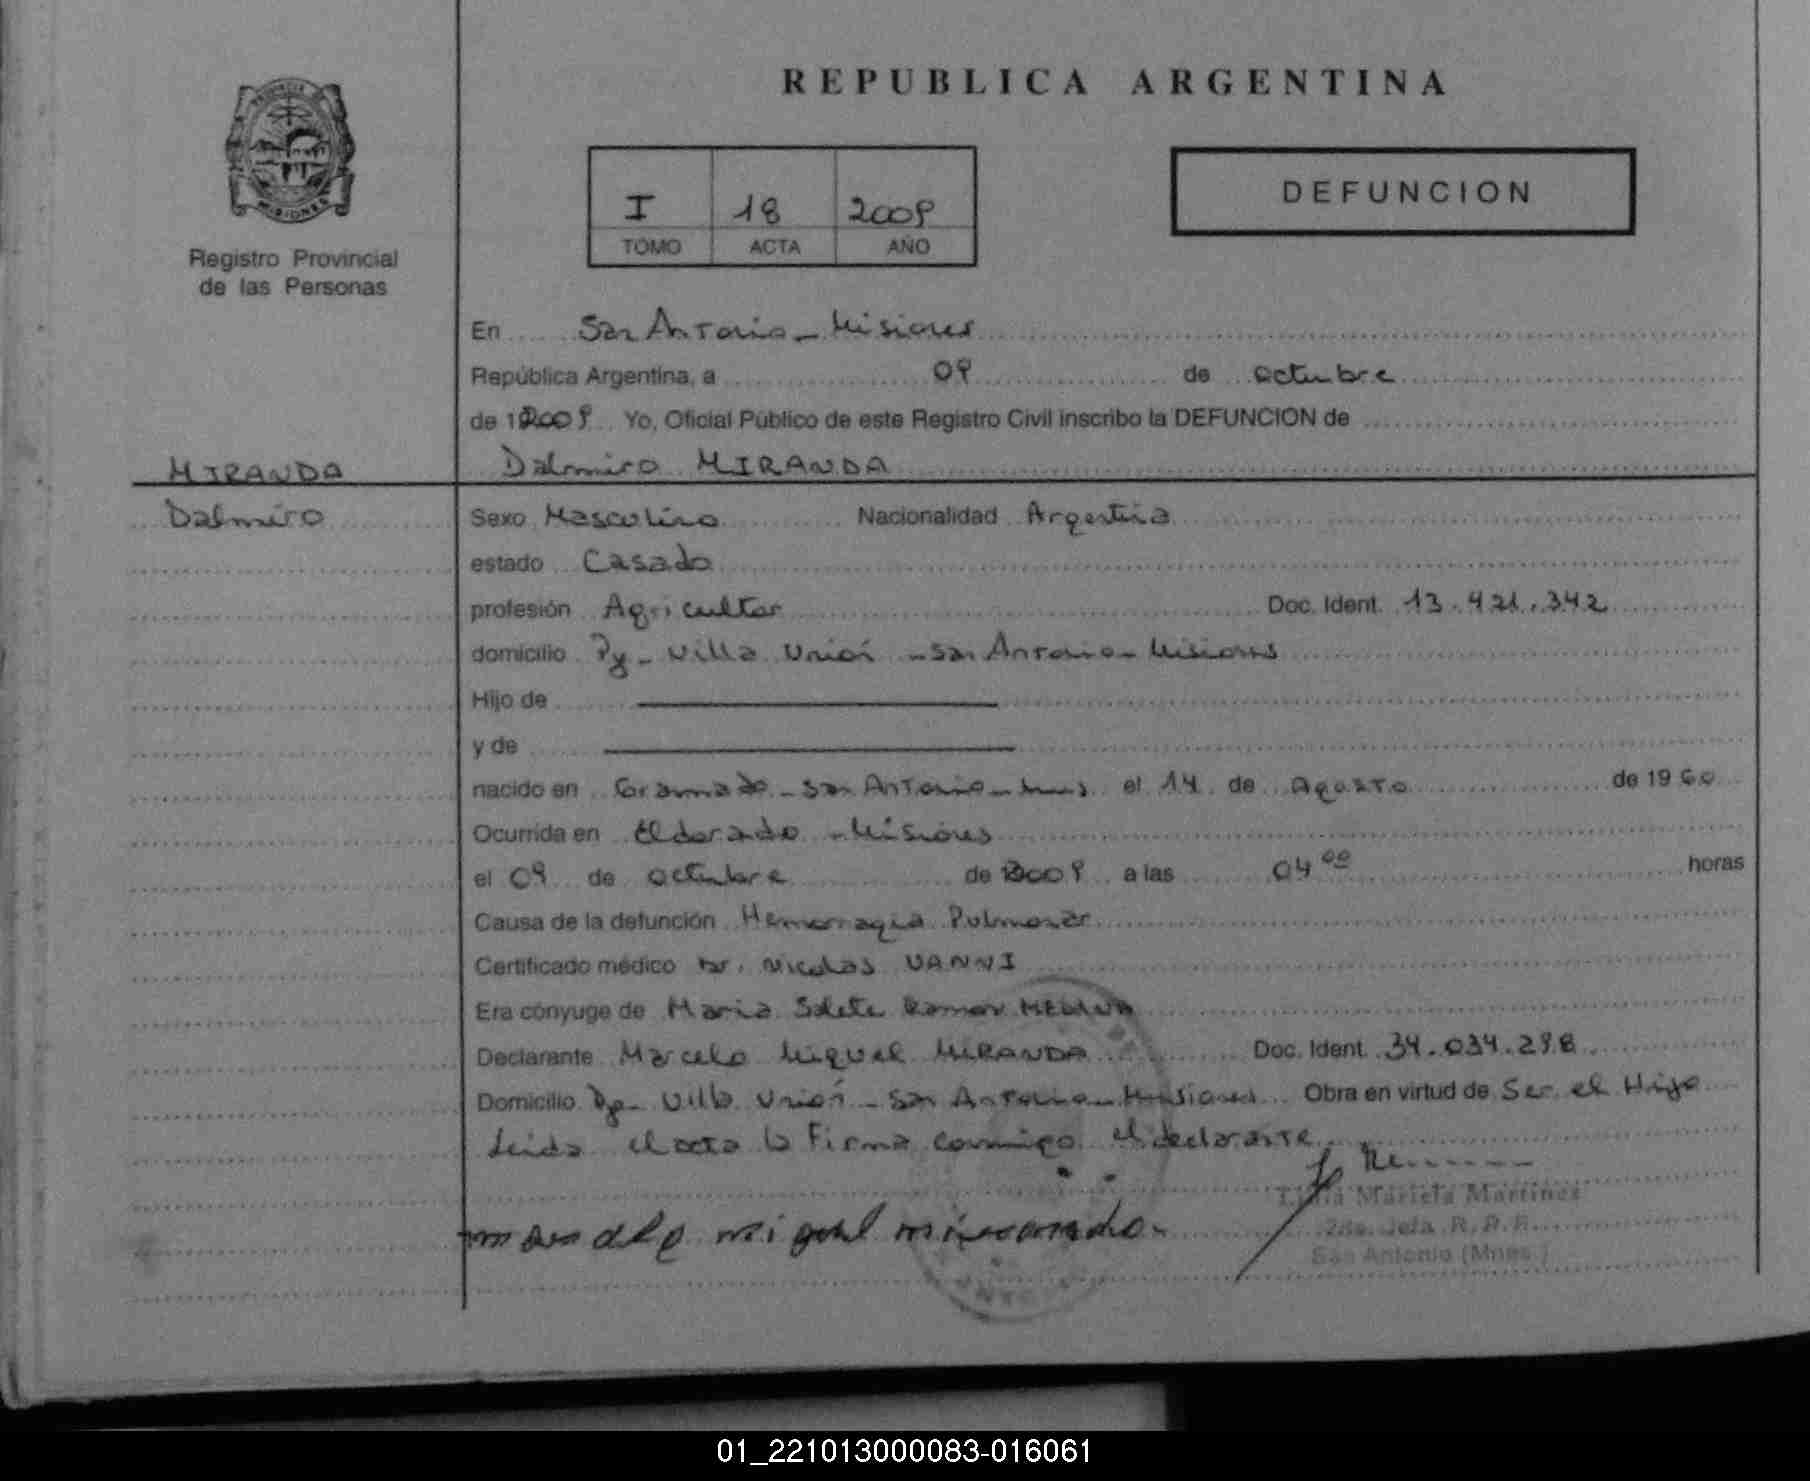 REPUBLICA ARGENTINA
PROVINCIA DE
MISIONES
Registro Provincial
de las Personas
I 18 2009
TOMO ACTA AÑO
DEFUNCION
En San Antonio - Misiones
República Argentina, a 09 de octubre
de 2009 Yo, Oficial Público de este Registro Civil inscribo la DEFUNCION de
MIRANDA Dalmiro MIRANDA
Dalmiro Sexo Masculino Nacionalidad Argentina
estado Casado
profesión Agricultor Doc. Ident. 13.421.342
domicilio Villa Unión - San Antonio - Misiones
Hijo de
y de
nacido en Gramado - San Antonio - Mnes el 14 de Agosto de 1960
Ocurrida en Eldorado - Misiones
el 09 de octubre de 2009 a las 04 00 horas
Causa de la defunción Hemorragia Pulmonar
Certificado médico Dr. Nicolas VANNI
Era cónyuge de Maria Solete Ramor
Declarante Marcelo Miguel MIRANDA Doc. Ident. 34.034.298
Domicilio Villa Unión - San Antonio - Misiones Obra en virtud de Ser el Hijo
Leida el acta la Firma conmigo el declarante
miguel miranda
Mariela Martinez
Jefa R.P.P.
San Antonio (Mnes.)
01_221013000083-016061